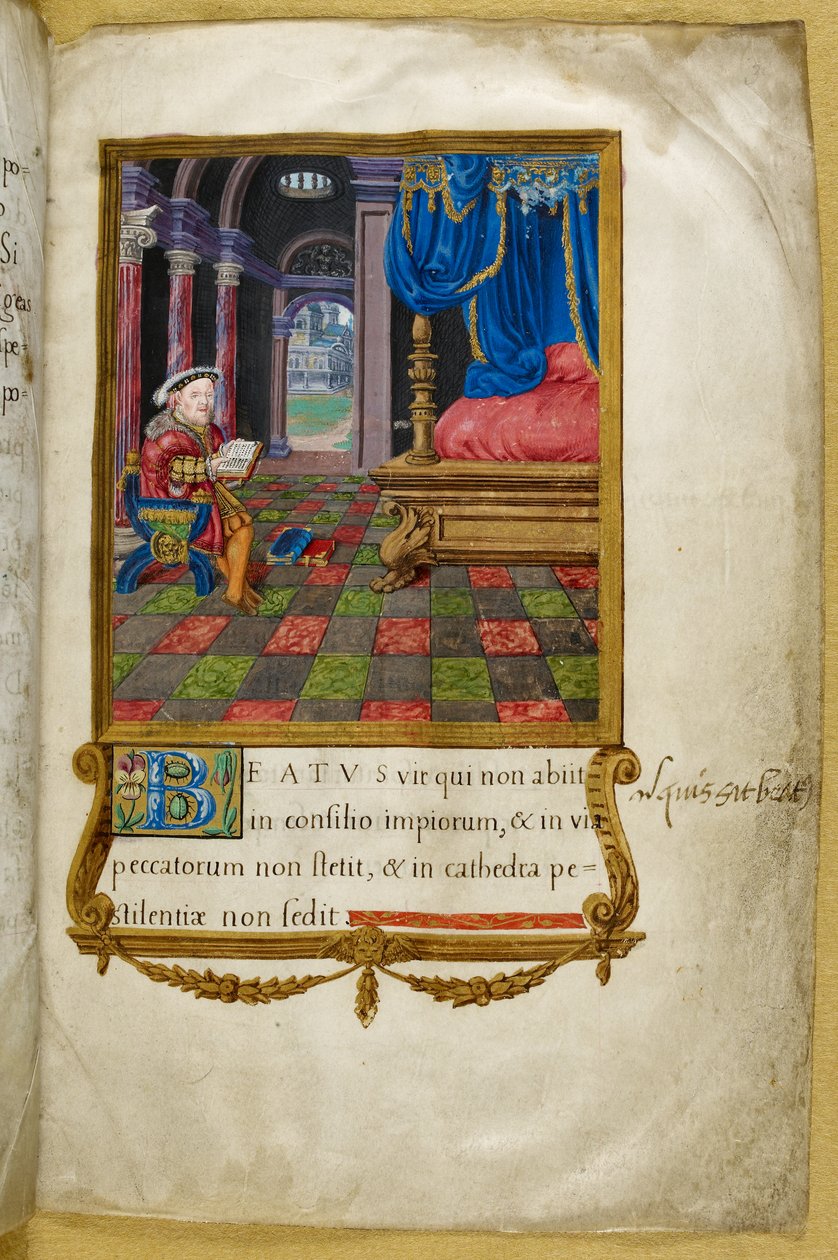 po=
Si
geas
spe=
po=
BEATVS vir qui non abiit
in conſilio impiorum, & in via
peccatorum non ſtetit, & in cathedra pe=
ſtilentiæ non ſedit.
quis sit beat9